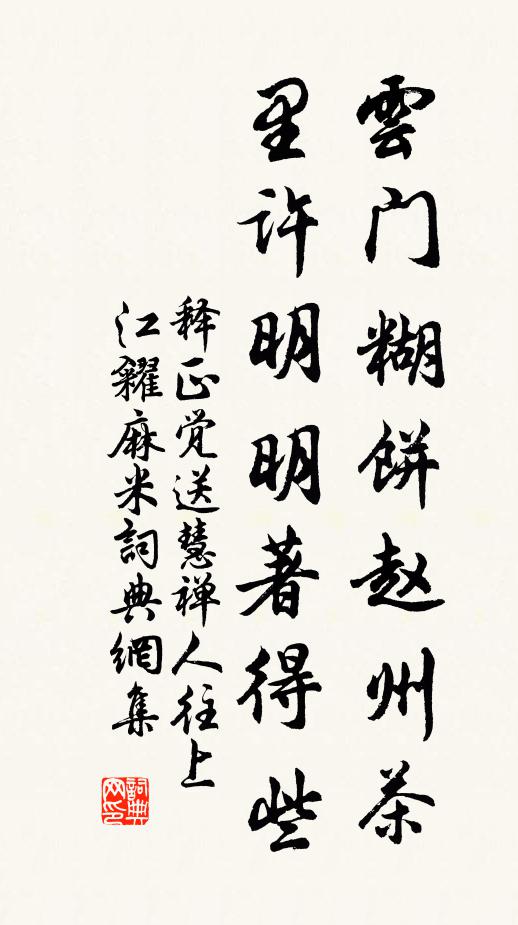 雲门糊餅赵州茶
里许明明著得些
释正觉送慧禅人往上
江糴麻米詞典網集
詞典网印